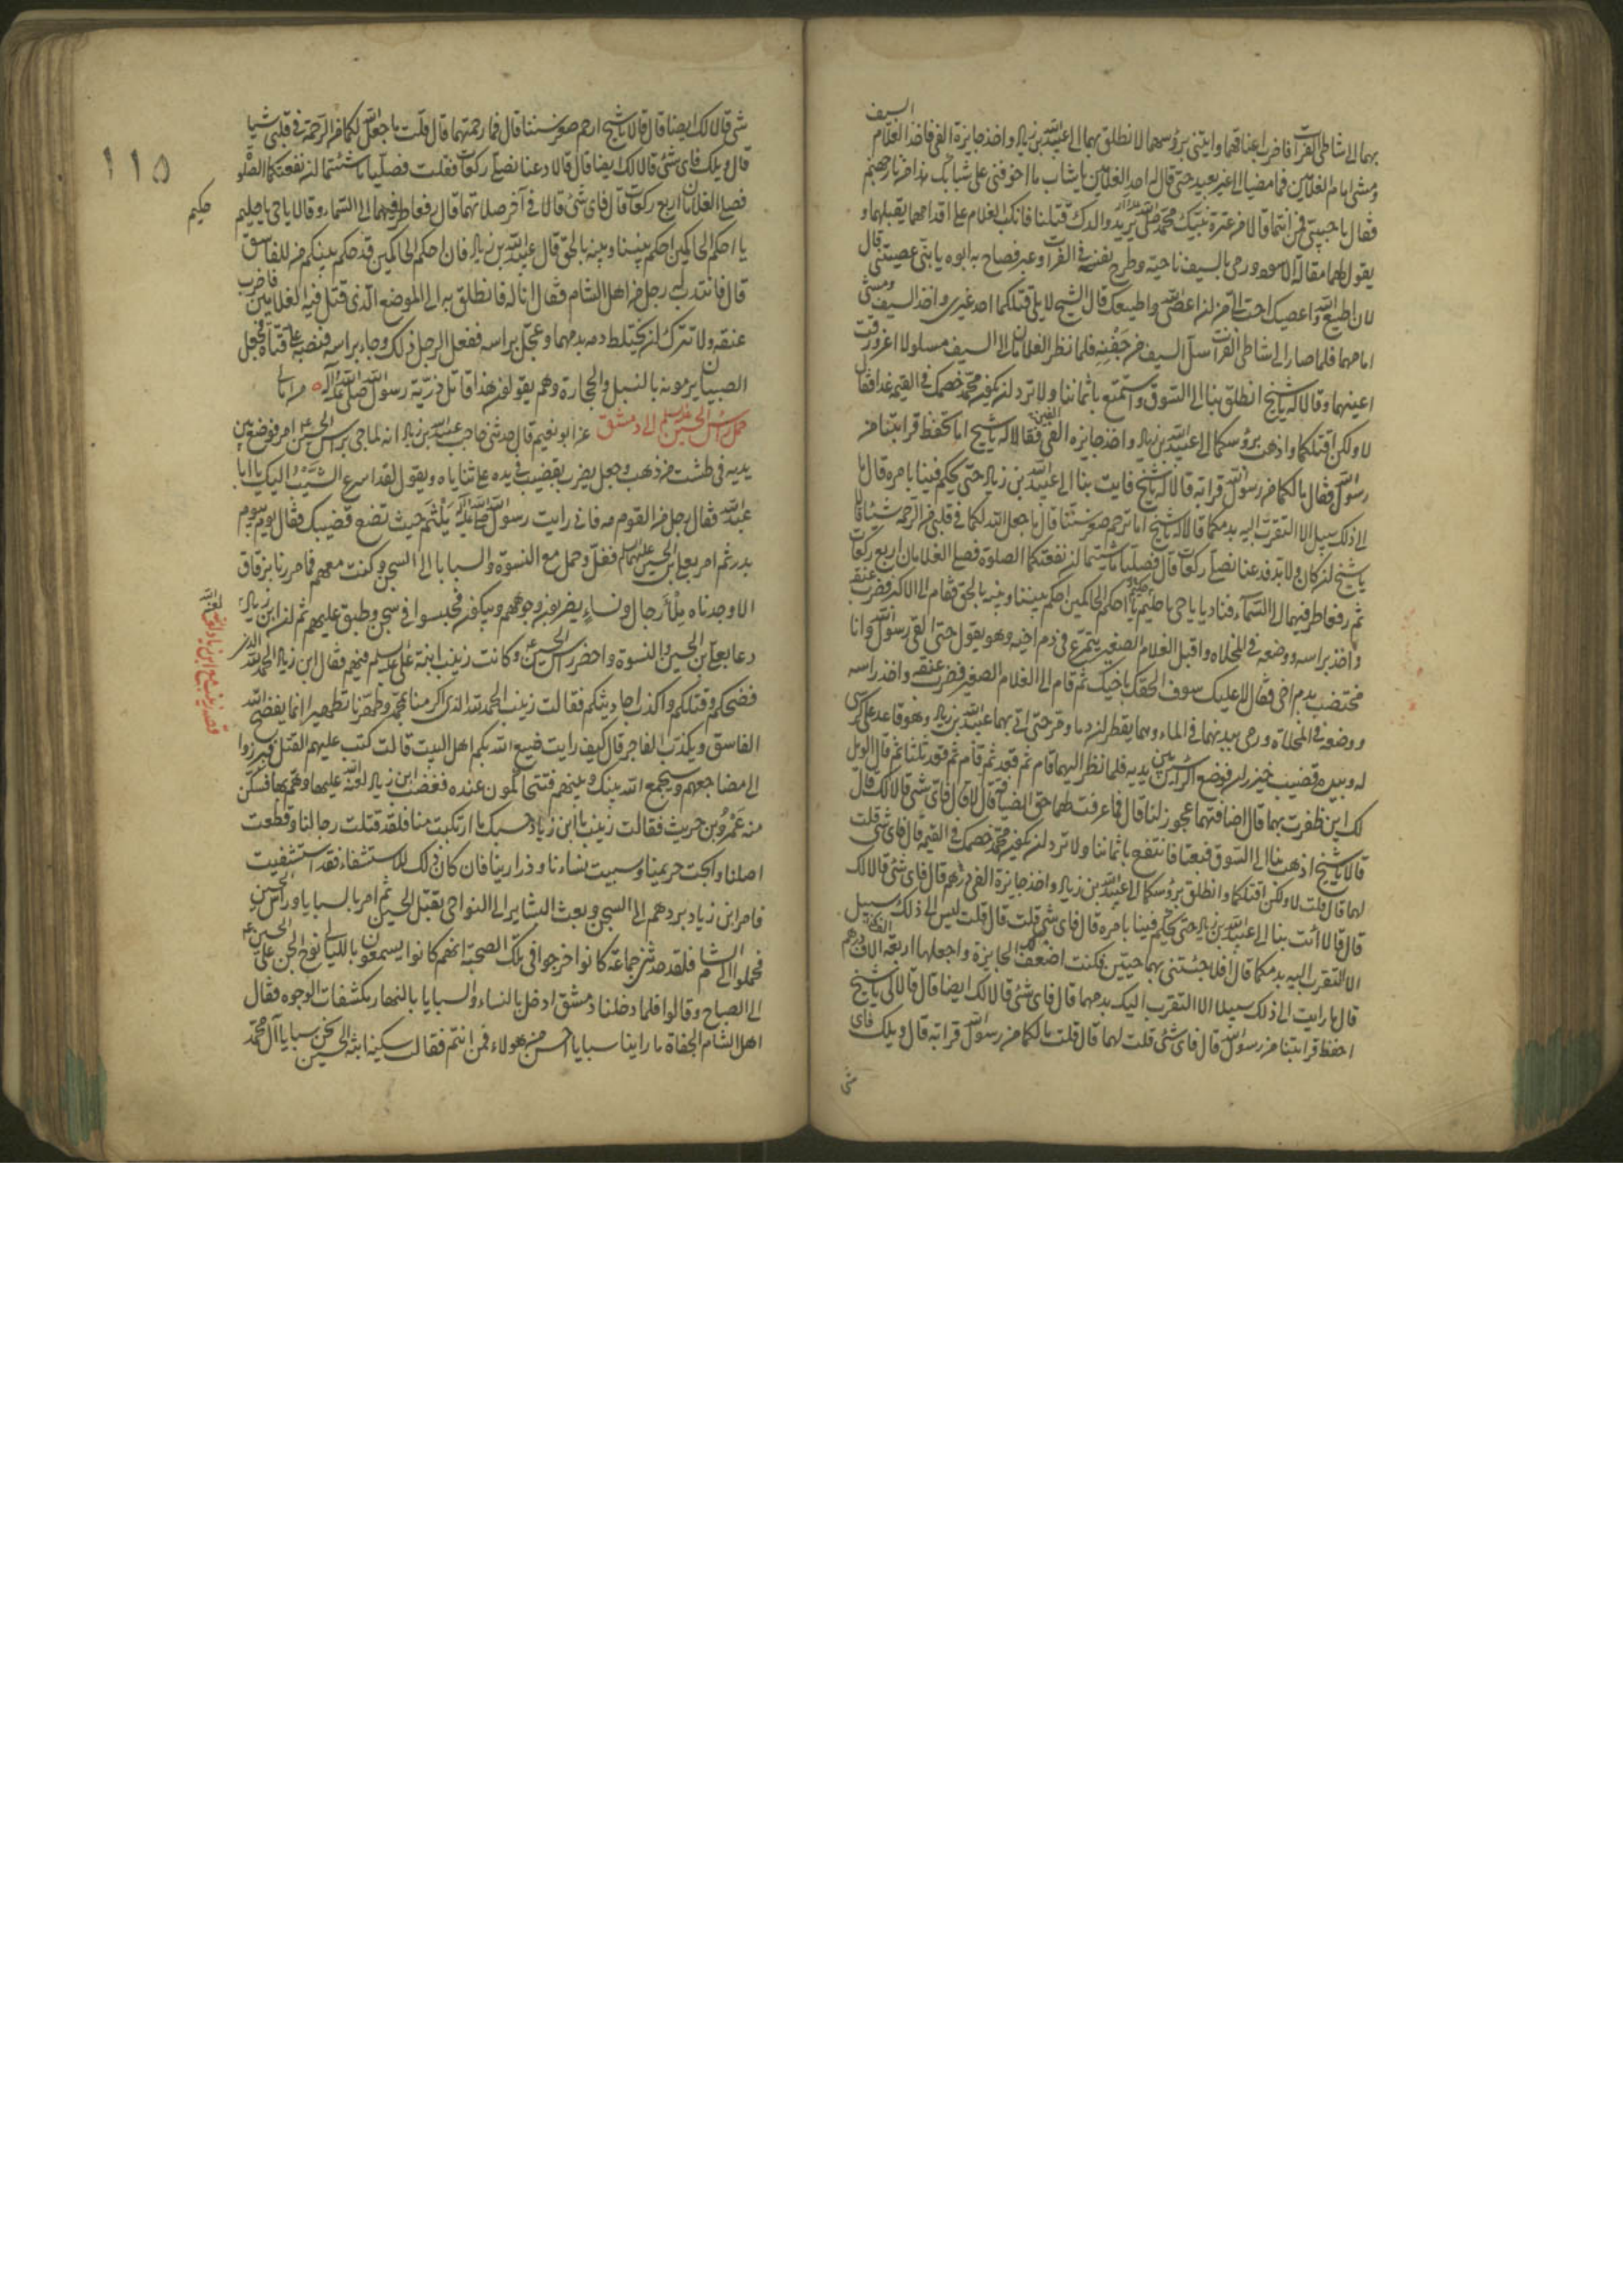 بهما الى شاطى الفرات فاضرب اعناقهما وايتنى برؤسهما لانطلق بهما الى عبيد الله بن زياد واخذ جايزة الفى فاخذ الغلام السيف
ومشى امام الغلامين فما مضيا الى غير بعيد حتى قال احد الغلامين يا شاب ما اخوفنى على شبابك هذا من نار جهنم
فقال يا حبيبى فمن انتما قالا من عترة نبيك محمد صلى الله عليه وآله يريد والدك قتلنا فانكب الغلام على اقدامهما يقبلهما و
يقول لهما مقالة الاسود ورمى بالسيف ناحية وطرح نفسه فى الفرات وعبر فصاح به ابوه يا بنى عصيتنى قال
لان اطيع الله واعصيك احب الى من ان اعصى الله واطيعك قال الشيخ لا يلى قتلكما احد غيرى واخذ السيف ومشى
امامهما فلما صارا الى شاطى الفرات سل السيف من جفنه فلما نظر الغلامان الى السيف مسلولا اغرورقت
اعينهما وقالا له يا شيخ انطلق بنا الى السوق واستمتع باثماننا ولا ترد ان يكون محمد خصمك فى القيمة غدا فقال
لا ولكن اقتلكما واذهب برؤسكما الى عبيد الله بن زياد واخذ جايزه الفين فقالا له يا شيخ اما تحفظ قرابتنا من
رسول الله فقال ما لكما من رسول الله قرابه قالا له يا شيخ فايت بنا الى عبيد الله بن زياد حتى يحكم فينا بامره قال ما
الى ذلك سبيل الا التقرب اليه بدمكما قالا له يا شيخ اما ترحم صغر سننا قال ما جعل الله لكما فى قلبى من الرحمه شيئا قالا
يا شيخ ان كان ولا بد فدعنا نصلى ركعات قال فصليا ما شئتما ان نفعتكما الصلوة فصلى الغلامان اربع ركعات
ثم رفعا طرفيهما الى السماء فناديا يا حى يا حليم يا احكم الحاكمين احكم بيننا وبينه بالحق فقام الى الاكبر فضرب عنقه
واخذ براسه ووضعه فى المخلاه واقبل الغلام الصغير يتمرغ فى دم اخيه وهو يقول حتى القى رسول الله وانا
مختضب بدم اخى فقال لا عليك سوف الحقك باخيك ثم قام الى الغلام الصغير فضرب عنقه واخذ راسه
ووضعه فى المخلاة ورمى ببدنهما فى الماء وهما يقطران دما ومر حتى اتى بهما عبيد الله بن زياد وهو قاعد على كرسى
له وبيده قضيب خيزران فوضع الراسين بين يديه فلما نظر اليهما قام ثم قعد ثم قام ثم قعد ثلثا ثم قال الويل
لك اين ظفرت بهما قال اضافتهما عجوز لنا قال فما عرفت لهما حق الضيافة قال لا قال فاى شى قالا لك قال
قالا يا شيخ اذهب بنا الى السوق فبعنا فانتفع باثماننا ولا ترد ان يكون محمد خصمك فى القيمة قال فاى شى قلت
لهما قال قلت لا ولكن اقتلكما وانطلق برؤسكما الى عبيد الله بن زياد واخذ جايزة الفى درهم قال فاى شى قالا لك
قال قالا ائت بنا الى عبيد الله بن زياد حتى يحكم فينا بامره قال فاى شى قلت قال قلت ليس الى ذلك سبيل
الا التقرب اليه بدمكما قال افلا جئتنى بهما حيين فكنت اضعف لك الجايزة واجعلها اربعة الاف درهم
قال ما رايت الى ذلك سبيلا الا التقرب اليك بدمهما قال فاى شى قالا لك ايضا قال قالا لى يا شيخ
احفظ قرابتنا من رسول الله قال فاى شى قلت لهما قال قلت ما لكما من رسول الله قرابه قال ويلك فاى
شى
١١٥
شى قالا لك ايضا قال قالا يا شيخ ارحم صغر سننا قال فما رحمتهما قال قلت ما جعل الله لكما من الرحمة فى قلبى شيا
قال ويلك فاى شى قالا لك ايضا قال قالا دعنا نصلى ركعات فقلت فصليا ما شئتما ان نفعتكما الصلوة
فصلى الغلامان اربع ركعات قال فاى شى قالا فى آخر صلاتهما قال رفعا طرفيهما الى السماء وقالا يا حى يا حليم
حكيم
يا احكم الحاكمين احكم بيننا وبينه بالحق قال عبيد الله بن زياد فان احكم الحاكمين قد حكم بينكم من للفاسق
قال فانتدب له رجل من اهل الشام فقال انا له قال فانطلق به الى الموضع الذى قتل فيه الغلامين فاضرب
عنقه ولا تترك ان يختلط دمه بدمهما وعجل براسه ففعل الرجل ذلك وجاء براسه فنصبه على قناة فجعل
الصبيان يرمونه بالنبل والحجارة وهم يقولون هذا قاتل ذرية رسول الله صلى الله عليه وآله
حمل راس الحسين عليه السلم الى دمشق عن ابو نعيم قال حدثنى حاجب عبيد الله بن زياد انه لما جى براس الحسين امر فوضع بين
يديه فى طشت من ذهب وجعل يضرب بقضيب فى يده على ثناياه ويقول لقد اسرع الشيب اليك يا ابا
عبد الله فقال رجل من القوم مه فانى رايت رسول الله صلى الله عليه وآله يلثم حيث تضع قضيبك فقال يوم بيوم
بدر ثم امر بعلى بن الحسين عليهما السلم فغل وحمل مع النسوة والسبايا الى السجن وكنت معهم فما مررنا بزقاق
الا وجدناه ملأ رجال ونساء يضربون وجوههم ويبكون فحبسوا فى سجن وطبق عليهم ثم ان ابن زياد
دعا بعلى بن الحسين والنسوة واحضر راس الحسين وكانت زينب ابنة على عليه السلم فيهم فقال ابن زياد الحمد لله الذى
قصه زينب مع ابن زياد لعنه الله
فضحكم وقتلكم واكذب احاديثكم فقالت زينب الحمد لله الذى اكرمنا بمحمد وطهرنا تطهيرا انما يفضح الله
الفاسق ويكذب الفاجر قال كيف رايت صنيع الله بكم اهل البيت قالت كتب عليهم القتل فبرزوا
الى مضاجعهم وسيجمع الله بينك وبينهم فتتحاكمون عنده فغضب ابن زياد لعنه الله عليها وهم بها فسكن
منه عمرو بن حريث فقالت زينب يا ابن زياد حسبك ما ارتكبت منا فلقد قتلت رجالنا وقطعت
اصلنا وابحت حريمنا وسبيت نساءنا وذرارينا فان كان ذلك للاستشفاء فقد استشفيت
فامر ابن زياد بردهم الى السجن وبعث البشاير الى النواحى بقتل الحسين ثم امر بالسبايا وراس الحسين
فحملوا الى الشام فلقد حدثنى جماعة كانوا خرجوا فى تلك الصحبة انهم كانوا يسمعون بالليالى نوح الجن على الحسين
الى الصباح وقالوا فلما دخلنا دمشق ادخل بالنساء والسبايا بالنهار مكشفات الوجوه فقال
اهل الشام الجفاة ما راينا سبايا احسن من هولاء فمن انتم فقالت سكينة ابنة الحسين نحن سبايا آل محمد